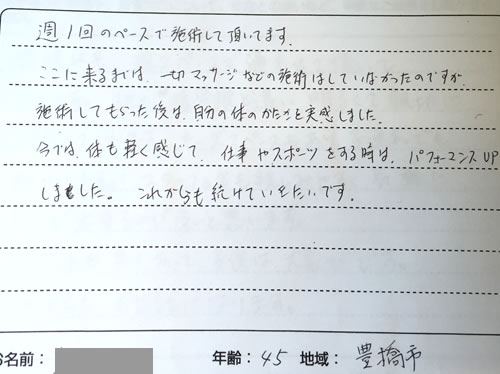 週1回のペースで施術して頂いてます。
ここに来るまでは、一切マッサージなどの施術はしていなかったのですが、
施術してもらった後は、自分の体のかたさを実感しました。
今では、体も軽く感じて、仕事やスポーツをする時は、パフォーマンスUP
しました。これからも続けていきたいです。
お名前： 年齢：45 地域：豊橋市